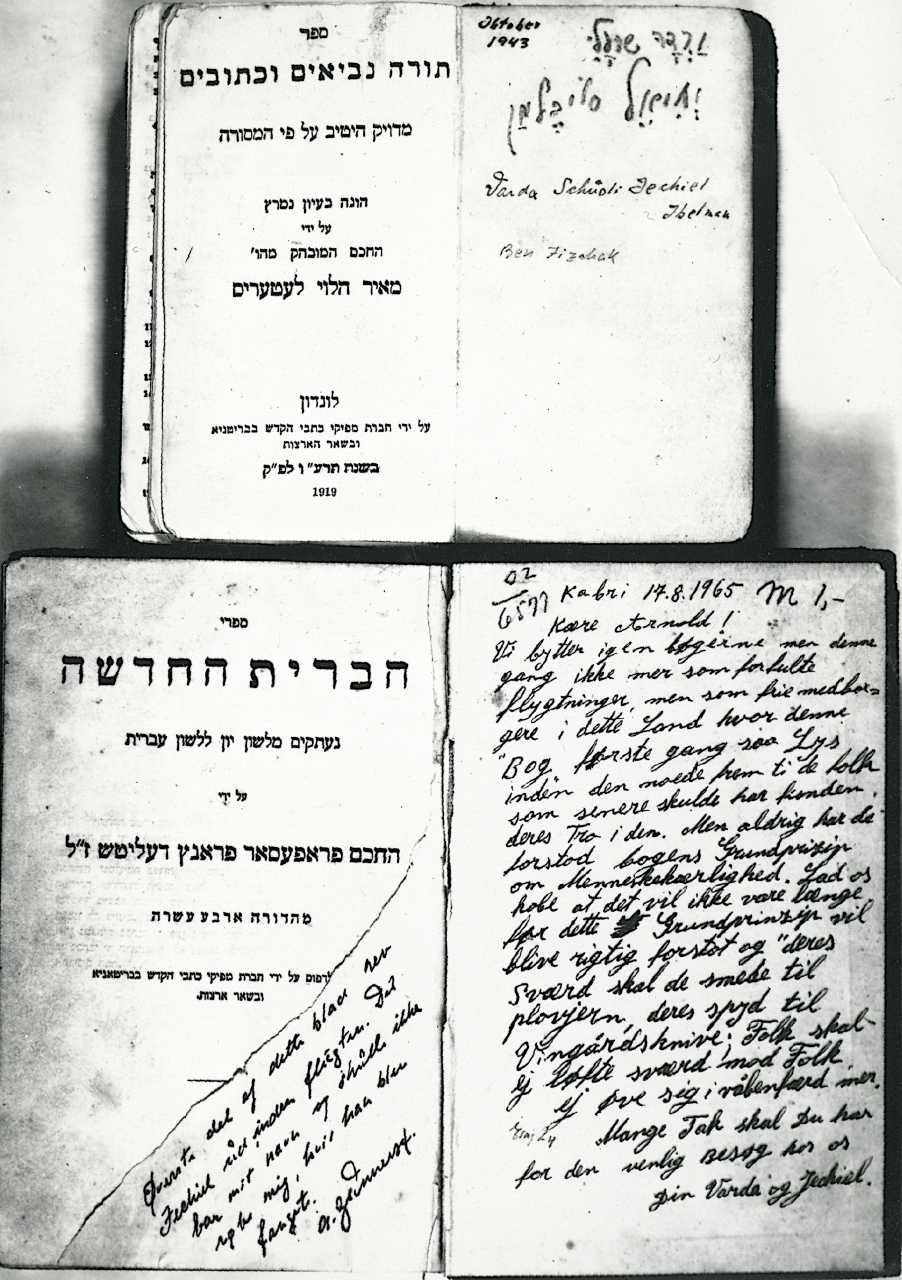 ספר
תורה נביאים וכתובים
מדויק היטיב על פי המסורה
הוגה בעיון נמרץ
על ידי
החכם המובהק מהו׳
מאיר הלוי לעטערים
לונדון
על ידי חברת מפיקי כתבי הקדש בבריטניא
ובשאר הארצות
בשנת תרע״ו לפ״ק
1919
Oktober
1943
וַרְדָה
Varda Jechiel
Ben
ספרי
הברית החדשה
נעתקים מלשון יון ללשון עברית
על ידי
החכם פראפעסאר פראנץ דעליטש ז״ל
מהדורה ארבע עשרה
נדפס על ידי חברת מפיקי כתבי הקדש בבריטאניא
ובשאר ארצות.
Øverste del af dette blad rev
Jechiel ud inden flugten. Det
bar mit navn og skulle ikke
røbe mig, hvis han blev
fanget.
02
6577 Kabri 17.8.1965 M 1,-
Kære Arnold!
Vi bytter igen bøgerne men denne
gang ikke mer som forfulte
flygtninger, men som frie medbor=
gere i dette Land hvor denne
"Bog første gang saa Lys
inden den naede frem ti de folk
som senere skulde har funden
deres Tro i den. Men aldrig har de
forstod bogens Grundprinzip
om Menneskekærlighed. Lad os
hobe at det vil ikke vare længe
før dette Grundprinzip vil
blive rigtig forstot og "deres
Sværd skal de smede til
plovjern, deres spyd til
Vingårdsknive; Folk skal
ej løfte sværd mod Folk
ej øve sig i våbenfærd mer.
Mange Tak skal Du har
for den venlig Besøg hos os
Din Varda og Jechiel.